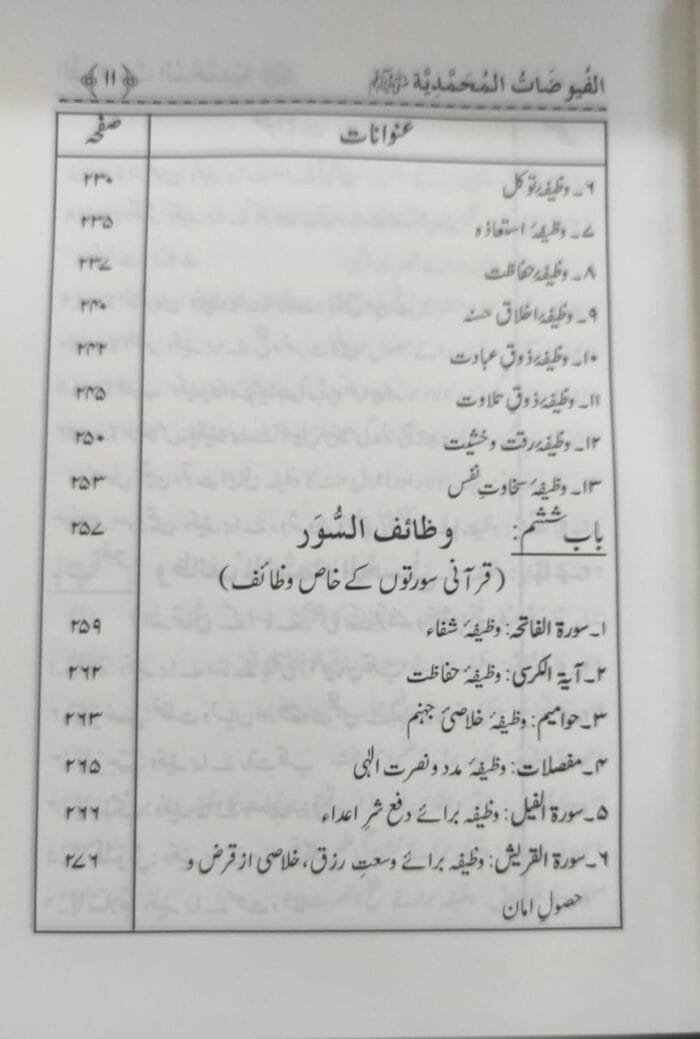 الفُیُوضَاتُ المُحَمَّدِیَّة ﷺ ﴿۱۱﴾
عنوانات صفحہ
۶۔ وظیفۂ توکل ۲۳۰
۷۔ وظیفۂ استعاذہ ۲۳۵
۸۔ وظیفۂ حفاظت ۲۳۷
۹۔ وظیفۂ اخلاق حسنہ ۲۴۰
۱۰۔ وظیفۂ ذوقِ عبادت ۲۴۲
۱۱۔ وظیفۂ ذوقِ تلاوت ۲۴۵
۱۲۔ وظیفۂ رقت و خشیت ۲۵۰
۱۳۔ وظیفۂ سخاوتِ نفس ۲۵۳
باب ششم: وظائف السُّوَر ۲۵۷
(قرآنی سورتوں کے خاص وظائف)
۱۔ سورۃ الفاتحہ: وظیفۂ شفاء ۲۵۹
۲۔ آیۃ الکرسی: وظیفۂ حفاظت ۲۶۲
۳۔ حوامیم: وظیفۂ خلاصیٔ جہنم ۲۶۳
۴۔ مفصلات: وظیفۂ مدد و نصرت الٰہی ۲۶۵
۵۔ سورۃ الفیل: وظیفہ برائے دفع شرِ اعداء ۲۶۶
۶۔ سورۃ القریش: وظیفہ برائے وسعتِ رزق، خلاصی از قرض و ۲۷۶
حصولِ امان